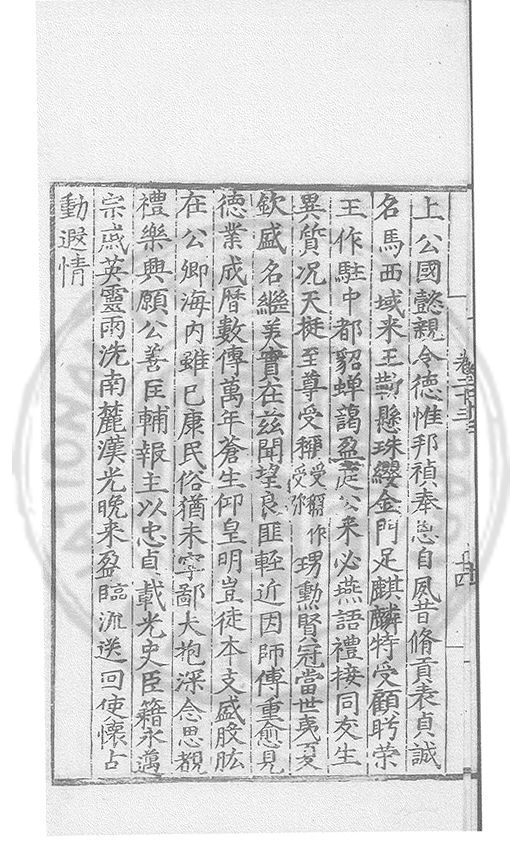 上公國懿親令德惟邦禎奉憲自夙昔脩貢表貞誠
名馬西域来王勒懸珠纓金門足麒麟特受顧眄荣
王作駐中都貂蟬藹盈庭公来必燕語禮接同友生
異質况天挺至尊受稱受稱作受弥瑒勲賢冠當世夷夏
欽盛名繼美實在兹聞望良匪輕近因師傅重愈見
德業成曆數傳萬年蒼生仰皇明豈徒本支盛股肱
在公卿海内雖已康民俗猶未寧鄙夫抱深念思覩
禮樂興願公善匡輔報主以忠貞載光史臣籍永邁
宗戚英靈雨洗南麓漢光晚来盈臨流送回使懷占
動遐情
卷二十三
十四